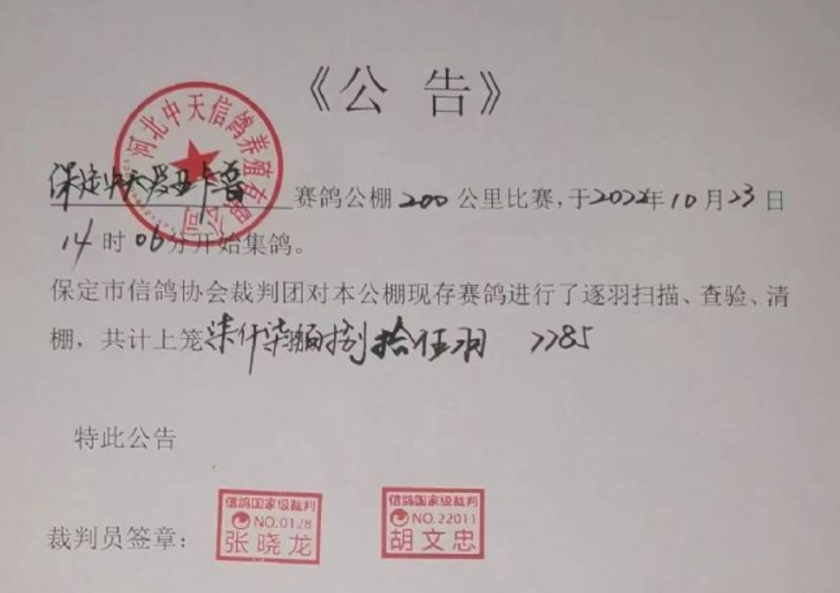 《公 告》
河北中天信鸽养殖有限公司
保定中天爱亚卡普 赛鸽公棚200公里比赛,于2022年10月23日
14时06分开始集鸽。
保定市信鸽协会裁判团对本公棚现存赛鸽进行了逐羽扫描、查验、清
棚,共计上笼柒仟柒佰捌拾伍羽 7785
特此公告
裁判员签章:
信鸽国家级裁判
NO.0128
张晓龙
信鸽国家级裁判
NO.22011
胡文忠